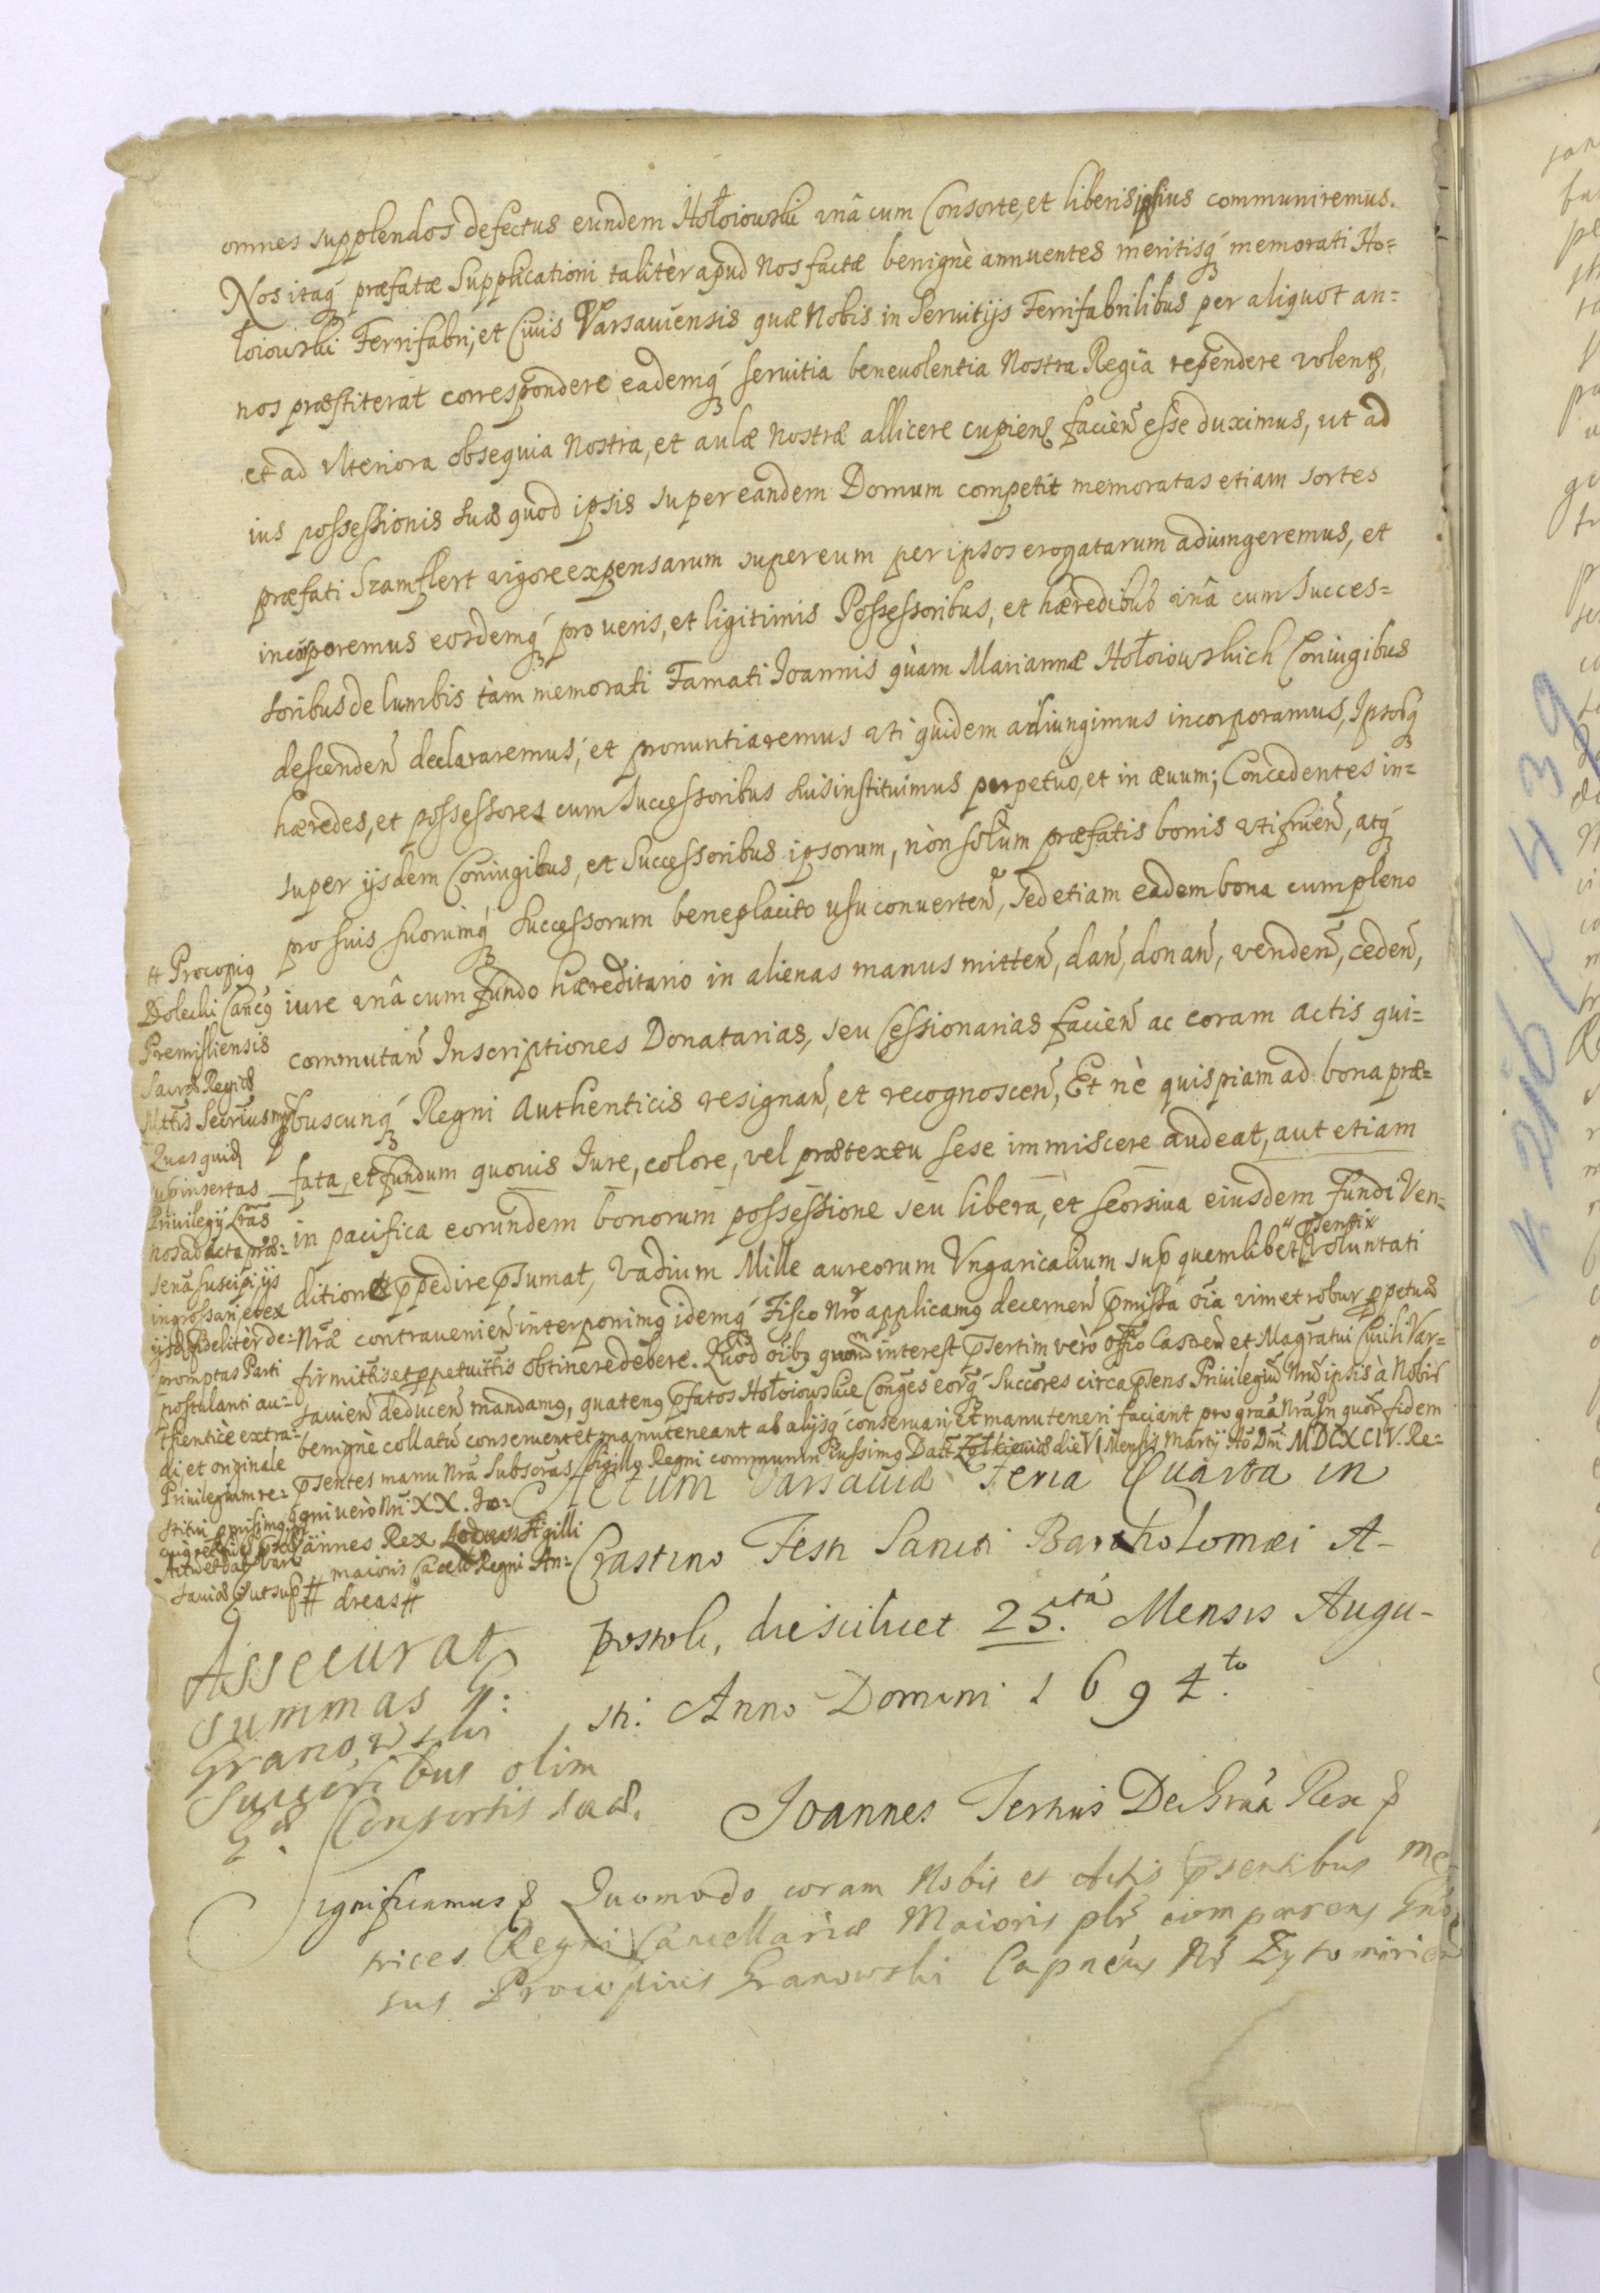 omnes supplendos defectus eundem Hołoiowski unâ cum Consorte, et liberis ipsius communiremus.
Nos itaq́ præfatæ Supplicationi talitèr apud Nos factæ benignè annuentes meritisq́ memorati Ho=
łoiowski Ferrifabri, et Civis Varsaviensis quæ Nobis in Servitijs Ferrifabrilibus per aliquot an=
nos præstiterat correspondere eademq́ servitia benevolentia Nostra Regia rependere volentes,
et ad ulteriora obsequia Nostra, et aulæ Nostræ allicere cupien faciен̄ esse duximus, ut ad
ius possessionis suæ quod ipsis super eandem Domum competit memoratas etiam sortes
præfati Szamflert vigore expensarum super eum per ipsos erogatarum adiungeremus, et
incorporemus eosdemq́ pro veris, et ligitimis Possessoribus, et hæredibus unâ cum Succes=
soribus de lumbis tàm memorati Famati Ioannis quàm Mariannæ Hołoiowskich Coniugibus
descenden̄ declararemus, et pronuntiaremus uti quidem adiungimus incorporamus, Ipsosq́
hæredes, et possessores cum Successoribus suis instituimus perpetuo, et in ævum; Concedentes in=
super ijsdem Coniugibus, et Successoribus ipsorum, nòn solùm præfatis bonis uti fruen̄, atq́
pro suis suorumq́ Successorum beneplacito usu converten̄, sed etiam eadem bona cum pleno
iure unâ cum fundo hæreditario in alienas manus mitten̄, dan̄, donan̄, venden̄, ceden̄,
commutan̄ Inscriptiones Donatarias, seu Cessionarias facien̄ ac coram actis qui=
buscunq́ Regni Authenticis resignan̄, et recognoscen̄, Et nè quispiam ad bona præ=
fata, et fundum quovis Iure, colore, vel prætextu sese immiscere audeat, aut etiam
in pacifica eorundem bonorum possessione seu libera, et seorsiva eiusdem fundi Ven=
ditione ꝑpedire p̄sumat, Vadium Mille aureorum Ungaricalium sup quemlibet voluntati
Nrǣ contravenien̄ interponimꝯ idemq́ Fisco Nrō applicamꝯ decernen̄ p̄missa oīa vim et robur ꝑpetuæ
firmitatis et ꝑpetuitātis obtinere debere. Quod oībꝯ quorum interest p̄sertim verò Offīo Castren̄ et Magratui Civili Var=
savien̄ deducen̄ mandamꝯ, quatenꝯ p̄fatos Hołoiowskie Conges eorq́ Succores circa p̄sens Privilegiū Nrū ipsis à Nobis
benignè collatū conservent et manuteneant ab alijsq́ conservari et manuteneri faciant pro graā Nrā In quor̄ fidem
p̄sentes manu Nrā Subscrās Sigillo Regni communiri iussimꝯ Dat Zołkieviæ die VI Mensis Martij Ao Dni MDCXCIV. Re=
gni verò Nri XX. Io=
annes Rex Locus Sigilli
maioris Cancell Regni An=
dreas #
# Procopiꝯ
Dolecki Cancꝯ
Premisliensis
Sacræ Regiæ
Mttis Secrius mp
Quas quid
sup insertas
Privilegij Lrās
nos ad acta præ=
sena suscipi ijs
ingrossari et ex
ijsd fidelitèr de=
promptas Parti
postulanti au=
thenticè extra=
di et originale
Privilegium re=
stitui p̄misimꝯ
Act et Dat Var
saviæ ut sup #
Actum Varsaviæ Feria Quarta in
Crastino Festi Sancti Bartholomæi A-
postoli, die scilicet 25.ta Mensis Augu-
sti: Anno Domini 1694.to
Assecurat
summas G:
Granowski
Succoribus olim
Gæ. Consortis suæ.
Joannes Tertius Dei Graā Rex &
Significamus & Quomodo coram Nobis et Actis p̄sentibus Me-
trices Regni Cancellariæ Maioris plr̄ comparens Gnō=
sus Procopius Granowski Capnéus Nr̄ Zytomirien̄